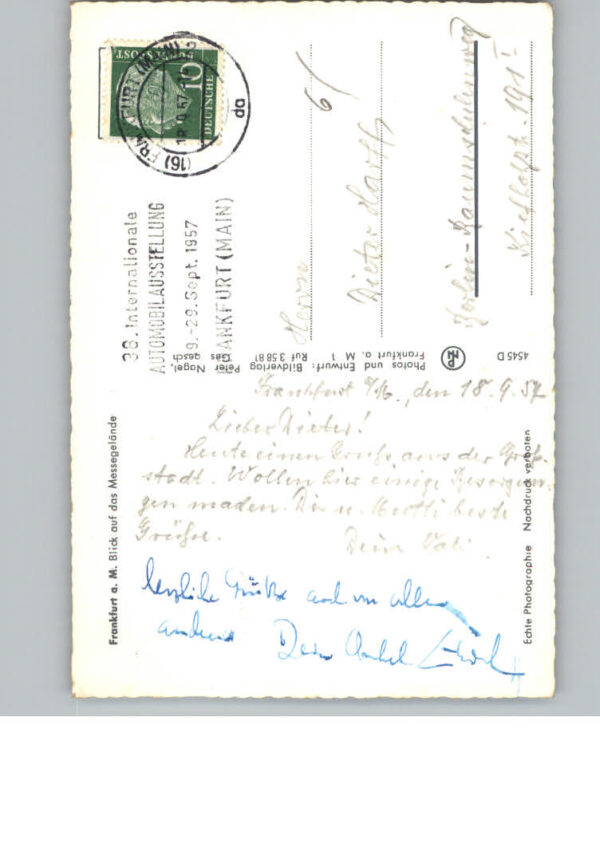 (16) FRANKFURT (MAIN) 2
18.9.57
da
DEUTSCHE
BUNDESPOST
10
38. Internationale
AUTOMOBILAUSSTELLUNG
19.-29. Sept. 1957
FRANKFURT (MAIN)
6/
Herrn
Dieter Harth
Berlin-Baumschulenweg
Kiefholzstr. 191 I
Peter Nagel,
Ges gesch
Photos und Entwurf: Bildverlag
Frankfurt a. M 1 Ruf 3 58 81
4545 D
Frankfurt a. M. Blick auf das Messegelände
Echte Photographie Nachdruck verboten
Frankfurt /M., den 18.9.57
Lieber Dieter!
Heute einen Gruß aus der Groß-
stadt. Wollen hier einige Besorgun-
gen machen. Dir u. Mutti beste
Grüße. Dein Vati
herzliche Grüße auch von allen
anderen Dein Onkel